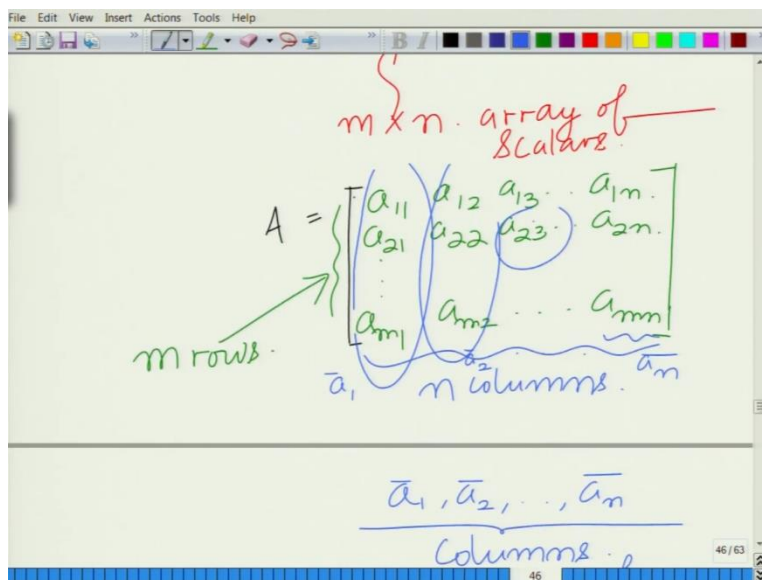 File Edit View Insert Actions Tools Help
B I
m x n. array of
scalars.
A = a11 a12 a13 . . a1n.
a21 a22 a23 . . a2n.
am1 am2 . . . amn
m rows.
ā1 n columns. ā2 . . . ān
ā1, ā2, . . , ān
columns.
46/63
46